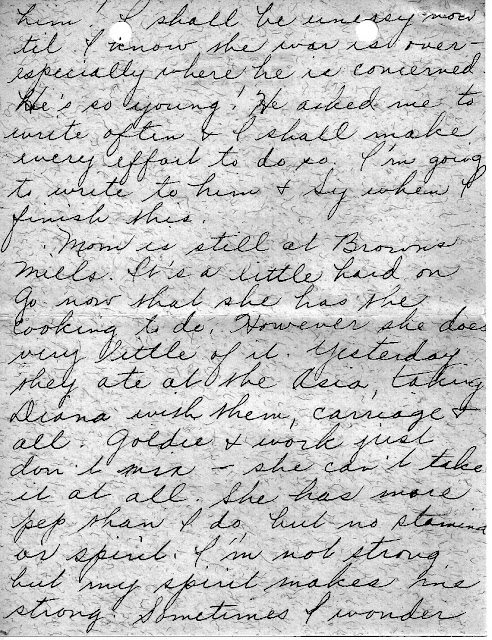 him! I shall be uneasy now
til I know the war is over -
especially where he is concerned.
He's so young! He asked me to
write often & I shall make
every effort to do so. I'm going
to write to him & Sy when I
finish this.
Mom is still at Browns
Mills. It's a little hard on
Go now that she has the
cooking to do. However she does
very little of it. Yesterday
they ate at the Asia, taking
Diana with them, carriage &
all. Goldie & work just
don't mix - she can't take
it at all. She has more
pep than I do but no stamina
or spirit. I'm not strong
but my spirit makes me
strong. Sometimes I wonder